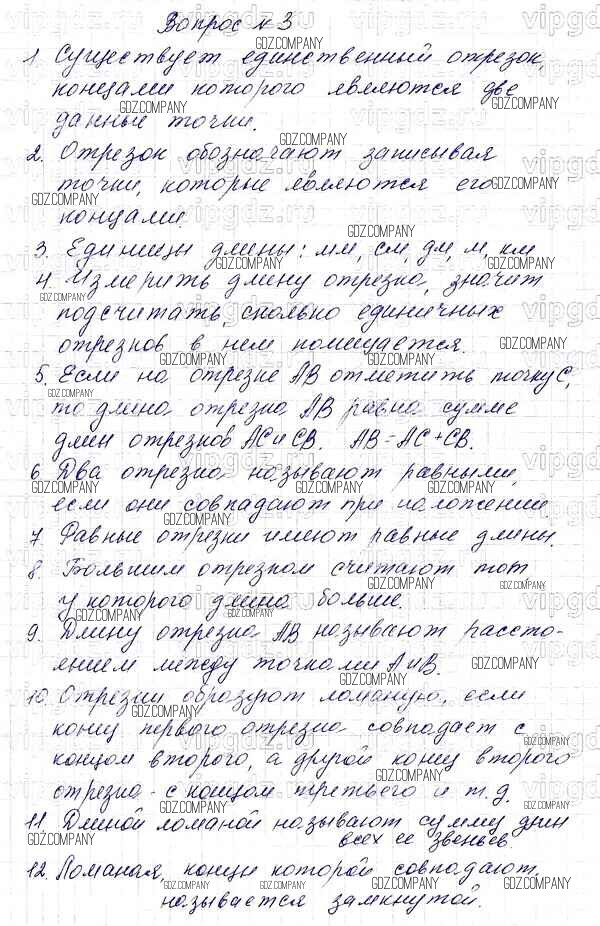 Вопрос №3
1 Существует единственный отрезок,
концами которого являются две
данные точки.
2. Отрезок обозначают записывая
точки, которые являются его
концами.
3. Единицы длины: мм, см, дм, м, км
4. Измерить длину отрезка, значит
подсчитать, сколько единичных
отрезков в нем помещается.
5. Если на отрезке АВ отметить точку С,
то длина отрезка АВ равна сумме
длин отрезков АС и СВ. АВ = АС + СВ.
6 Два отрезка называют равными,
если они совпадают при наложении
7. Равные отрезки имеют равные длины.
8. Большим отрезком считают тот
у которого длина больше.
9. Длину отрезка АВ называют рассто-
янием между точками А и В.
10. Отрезки образуют ломаную, если
конец первого отрезка совпадает с
концом второго, а другой конец второго
отрезка - с концом третьего и т.д.
11. Длиной ломаной называют сумму длин
всех ее звеньев.
12. Ломаная, концы которой совпадают,
называется замкнутой.
GDZ.COMPANY
vipgdz.ru